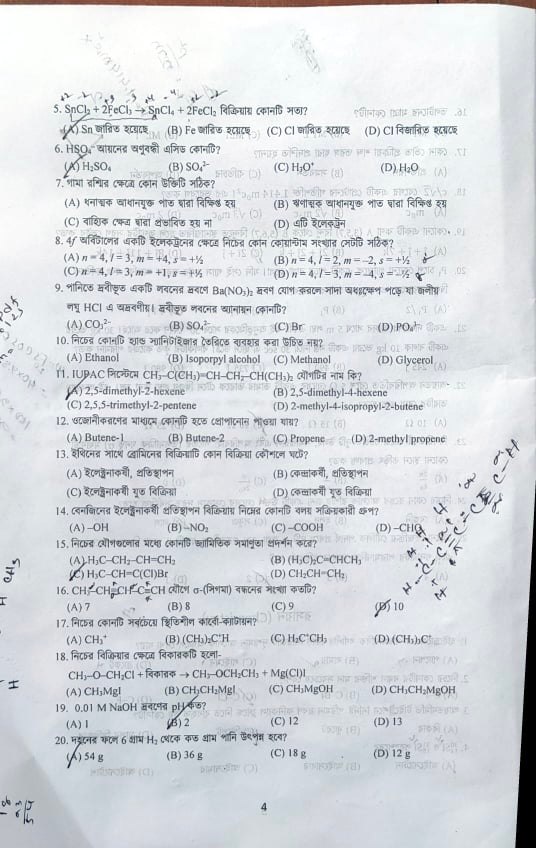 5. SnCl₂ + 2FeCl₃ → SnCl₄ + 2FeCl₂ বিক্রিয়ায় কোনটি সত্য?
(A) Sn জারিত হয়েছে (B) Fe জারিত হয়েছে (C) Cl জারিত হয়েছে (D) Cl বিজারিত হয়েছে
6. HSO₄⁻ আয়নের অণুবন্ধী এসিড কোনটি?
(A) H₂SO₄ (B) SO₄²⁻ (C) H₃O⁺ (D) H₂O
7. গামা রশ্মির ক্ষেত্রে কোন উক্তিটি সঠিক?
(A) ধনাত্মক আধানযুক্ত পাত দ্বারা বিক্ষিপ্ত হয় (B) ঋণাত্মক আধানযুক্ত পাত দ্বারা বিক্ষিপ্ত হয়
(C) বাহ্যিক ক্ষেত্র দ্বারা প্রভাবিত হয় না (D) এটি ইলেকট্রন
8. 4f অর্বিটালের একটি ইলেকট্রনের ক্ষেত্রে নিচের কোন কোয়ান্টাম সংখ্যার সেটটি সঠিক?
(A) n = 4, l = 3, m = +4, s = +½ (B) n = 4, l = 2, m = -2, s = +½
(C) n = 4, l = 3, m = +1, s = +½ (D) n = 4, l = 3, m = -4, s = -½
9. পানিতে দ্রবীভূত একটি লবনের দ্রবণে Ba(NO₃)₂ দ্রবণ যোগ করলে সাদা অধঃক্ষেপ পড়ে যা জলীয়
লঘু HCl এ অদ্রবণীয়। দ্রবীভূত লবনের অ্যানায়ন কোনটি?
(A) CO₃²⁻ (B) SO₄²⁻ (C) Br⁻ (D) PO₄³⁻
10. নিচের কোনটি হ্যান্ড স্যানিটাইজার তৈরিতে ব্যবহার করা উচিত নয়?
(A) Ethanol (B) Isoporpyl alcohol (C) Methanol (D) Glycerol
11. IUPAC সিস্টেমে CH₃-C(CH₃)=CH-CH₂-CH(CH₃)₂ যৌগটির নাম কি?
(A) 2,5-dimethyl-2-hexene (B) 2,5-dimethyl-4-hexene
(C) 2,5,5-trimethyl-2-pentene (D) 2-methyl-4-isopropyl-2-butene
12. ওজোনীকরণের মাধ্যমে কোনটি হতে প্রোপানোন পাওয়া যায়?
(A) Butene-1 (B) Butene-2 (C) Propene (D) 2-methyl propene
13. ইথিনের সাথে ব্রোমিনের বিক্রিয়াটি কোন বিক্রিয়া কৌশলে ঘটে?
(A) ইলেক্ট্রনাকর্ষী, প্রতিস্থাপন (B) কেন্দ্রাকর্ষী, প্রতিস্থাপন
(C) ইলেক্ট্রনাকর্ষী যুত বিক্রিয়া (D) কেন্দ্রাকর্ষী যুত বিক্রিয়া
14. বেনজিনের ইলেক্ট্রনাকর্ষী প্রতিস্থাপন বিক্রিয়ায় নিম্নের কোনটি বলয় সক্রিয়কারী গ্রুপ?
(A) –OH (B) –NO₂ (C) –COOH (D) –CHO
15. নিচের যৌগগুলোর মধ্যে কোনটি জ্যামিতিক সমাণুতা প্রদর্শন করে?
(A) H₃C–CH₂–CH=CH₂ (B) (H₃C)₂C=CHCH₃
(C) H₃C–CH=C(Cl)Br (D) CH₂CH=CH₂
16. CH₃-CH=CH-C≡CH যৌগে σ-(সিগমা) বন্ধনের সংখ্যা কতটি?
(A) 7 (B) 8 (C) 9 (D) 10
17. নিচের কোনটি সবচেয়ে স্থিতিশীল কার্বো-ক্যাটায়ন?
(A) CH₃⁺ (B) (CH₃)₂C⁺H (C) H₃C⁺CH₂ (D) (CH₃)₃C⁺
18. নিচের বিক্রিয়ার ক্ষেত্রে বিকারকটি হলো-
CH₃–O–CH₂Cl + বিকারক → CH₃–OCH₂CH₃ + Mg(Cl)I
(A) CH₃MgI (B) CH₃CH₂MgI (C) CH₃MgOH (D) CH₃CH₂MgOH
19. 0.01 M NaOH দ্রবণের pH কত?
(A) 1 (B) 2 (C) 12 (D) 13
20. দহনের ফলে 6 গ্রাম H₂ থেকে কত গ্রাম পানি উৎপন্ন হবে?
(A) 54 g (B) 36 g (C) 18 g (D) 12 g
4